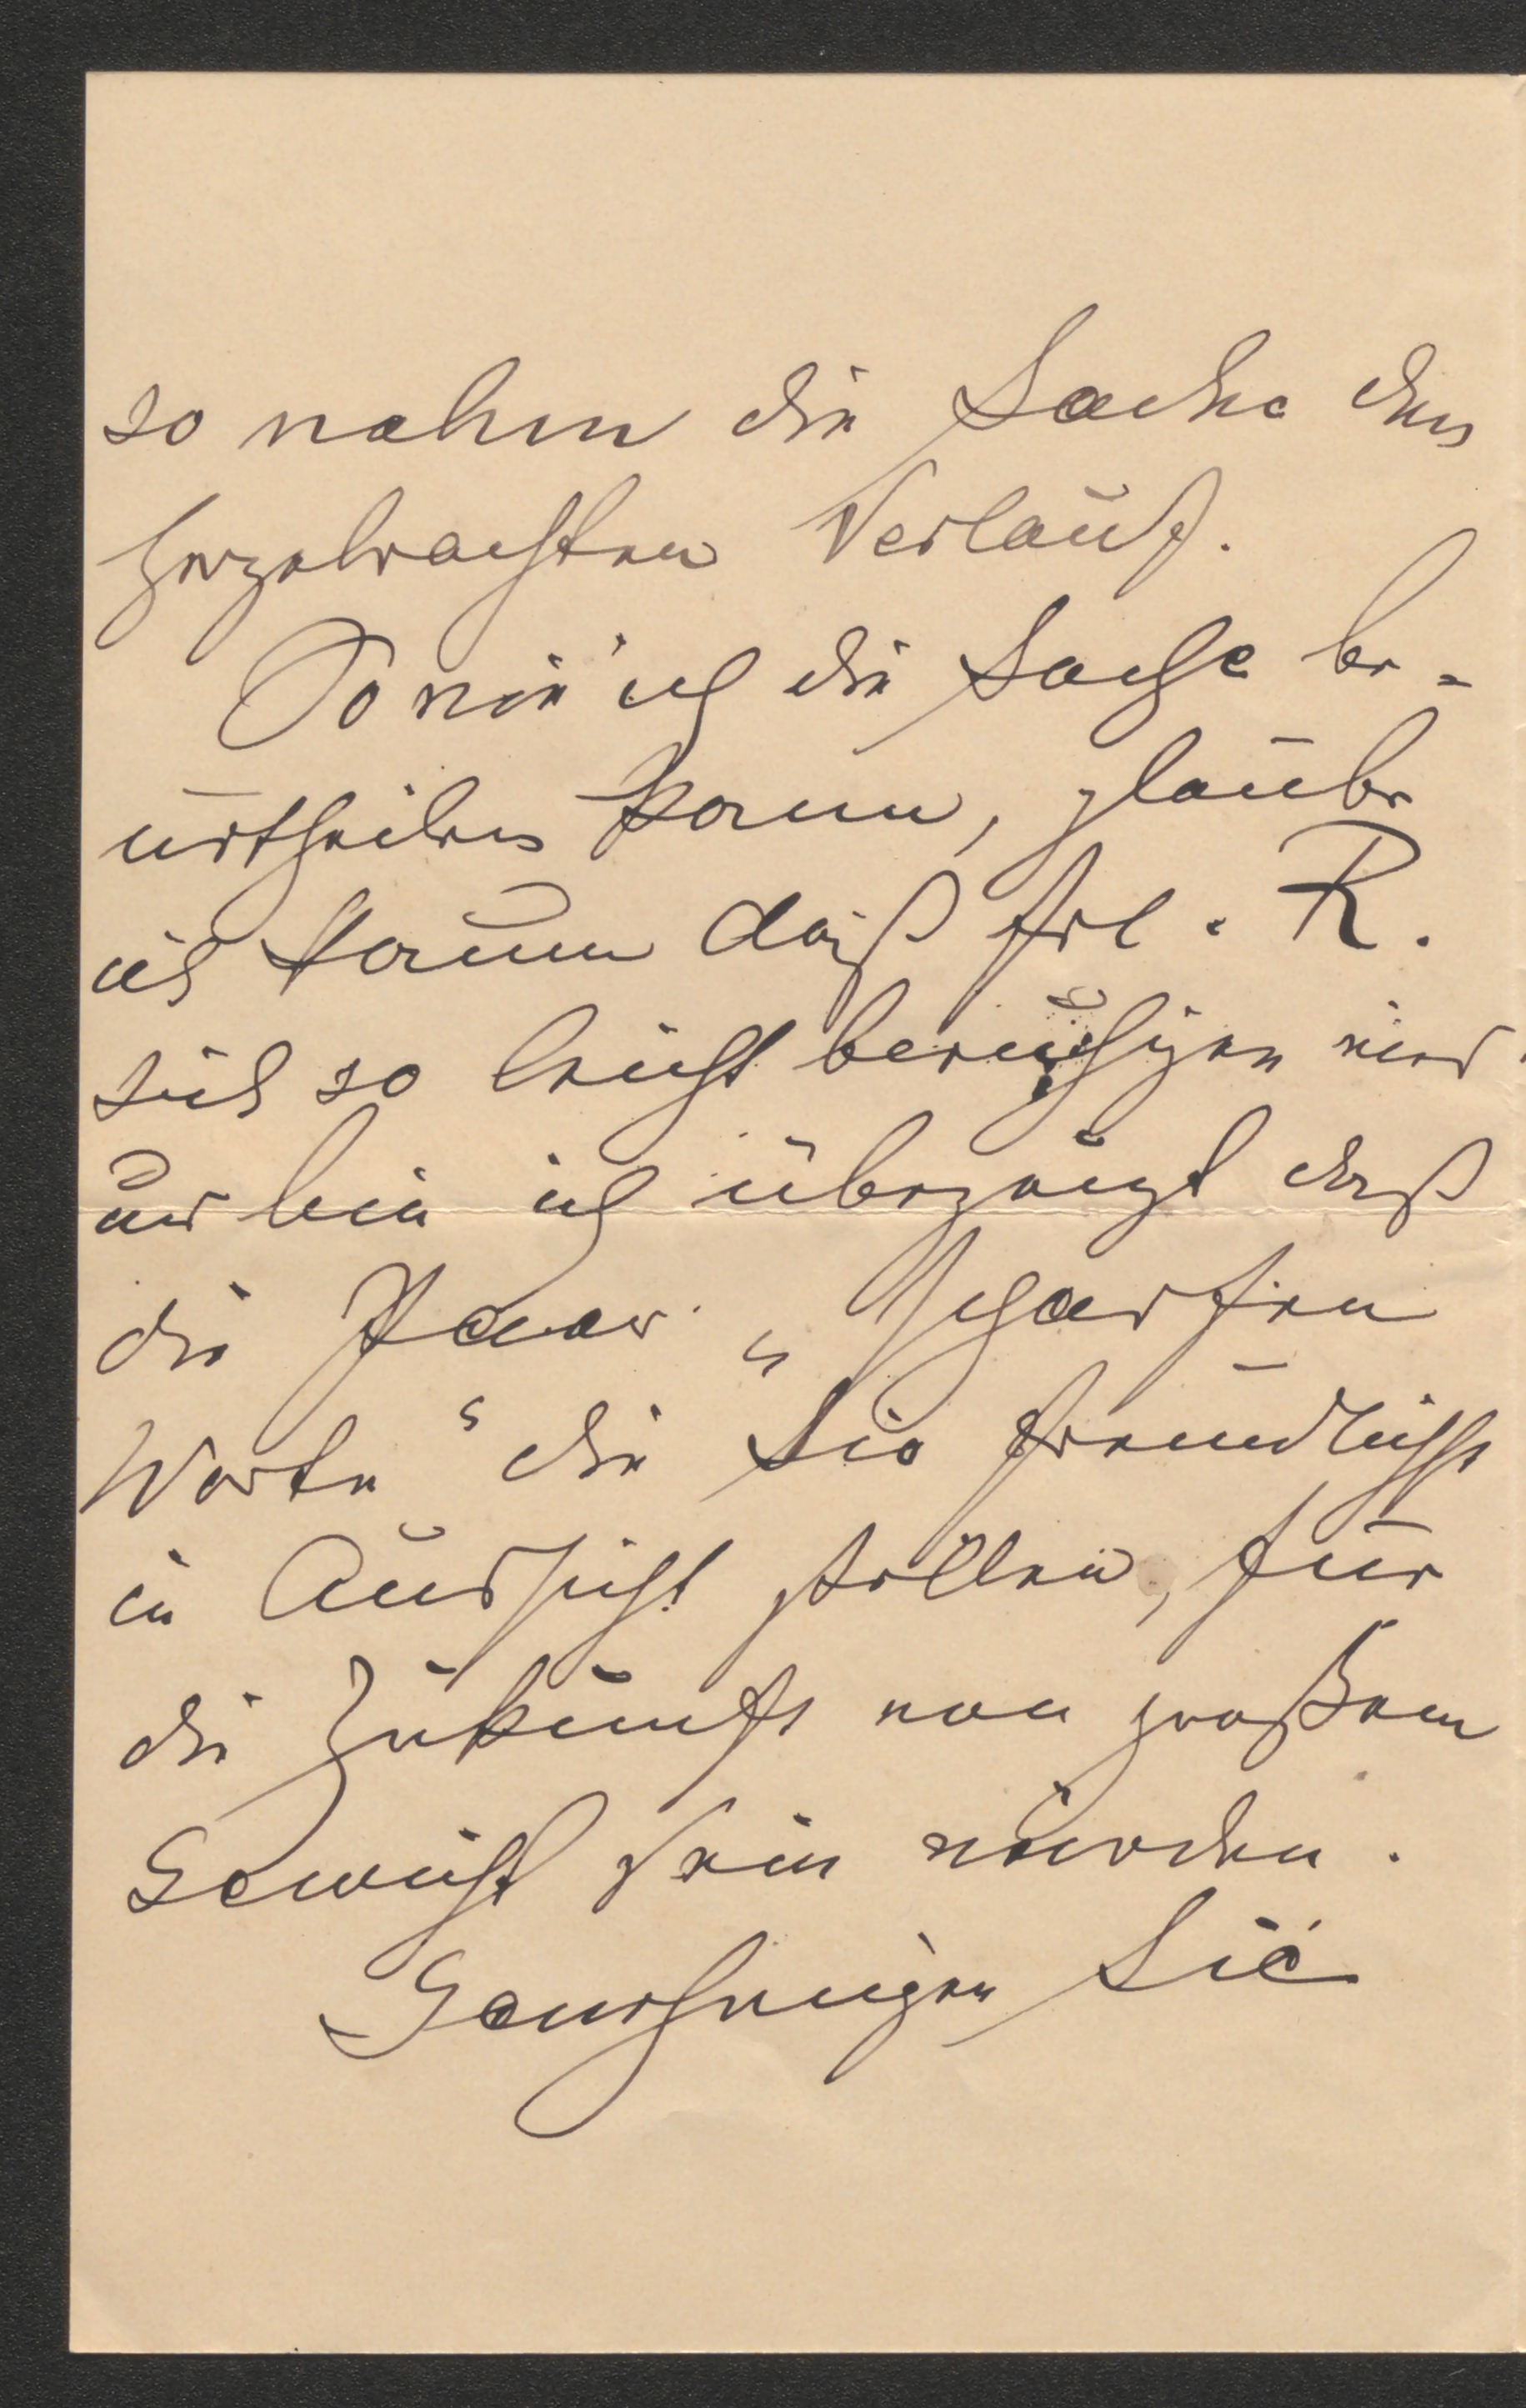 so nahm die Sache den
hergebrachten Verlauf.
So wie ich die Sache be-
urtheilen kann, glaube
ich kaum daß Frl. R.
sich so leicht beruhigen wird.
und bin ich überzeugt daß
die Paar „scharfen
Worte“ die Sie freundlichst
in Aussicht stellen, für
die Zukunft von großem
Gewicht sein würden.
Genehmigen Sie